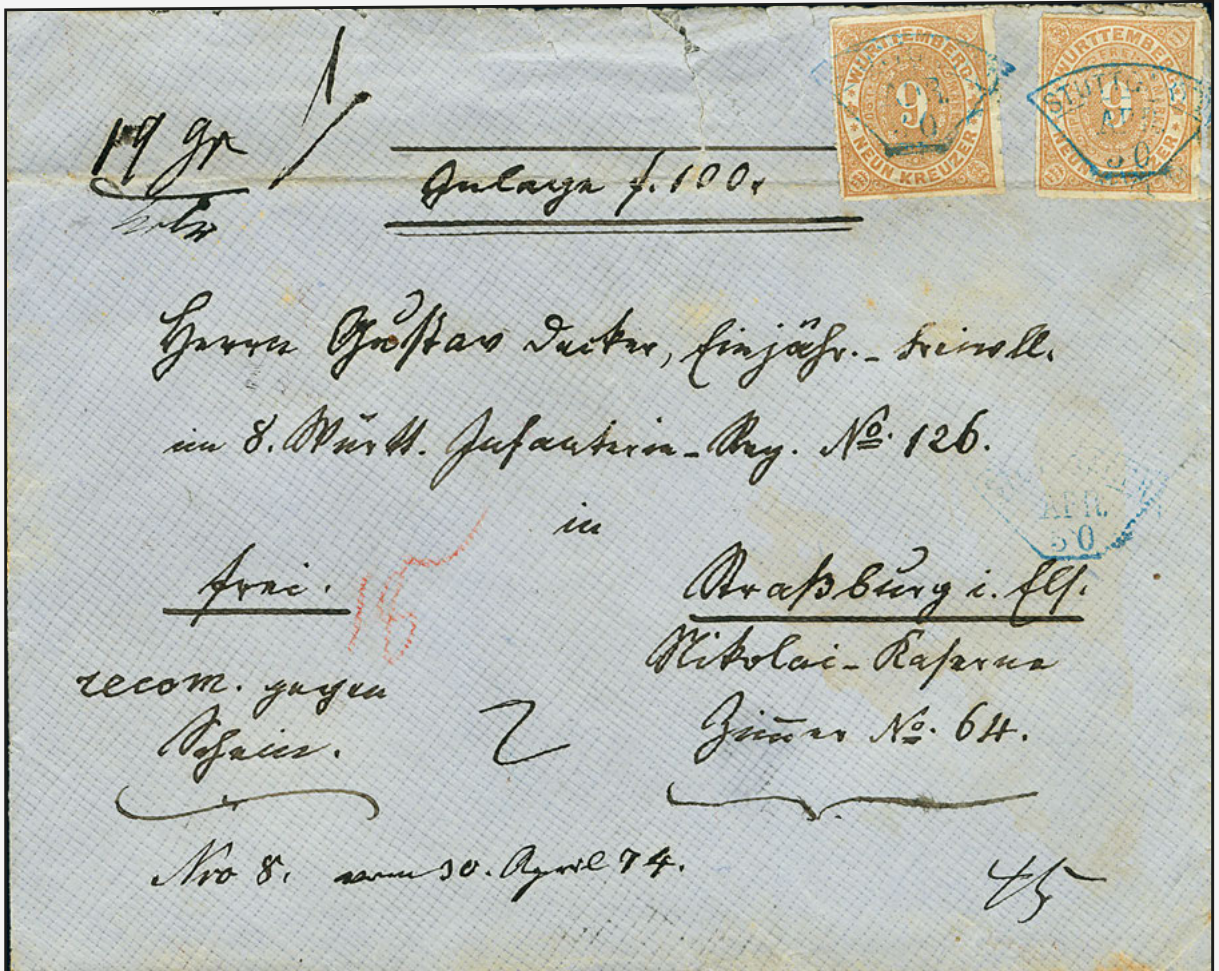 WÜRTTEMBERG
FREI
9
NEUN KREUZER
WÜRTTEMBERG
FREI
9
NEUN KREUZER
APR.
30
19 gr
Anlage f. 100.
Herrn Gustav Decker, Einjähr.-Freiwill.
im 8. Württ. Infanterie-Reg. No. 126.
in
frei.
Straßburg i. Els.
Nikolai-Kaserne
Zimmer No. 64.
recom. gegen
Schein.
2
APR.
30
Nro 8. vom 30. April 74.
45